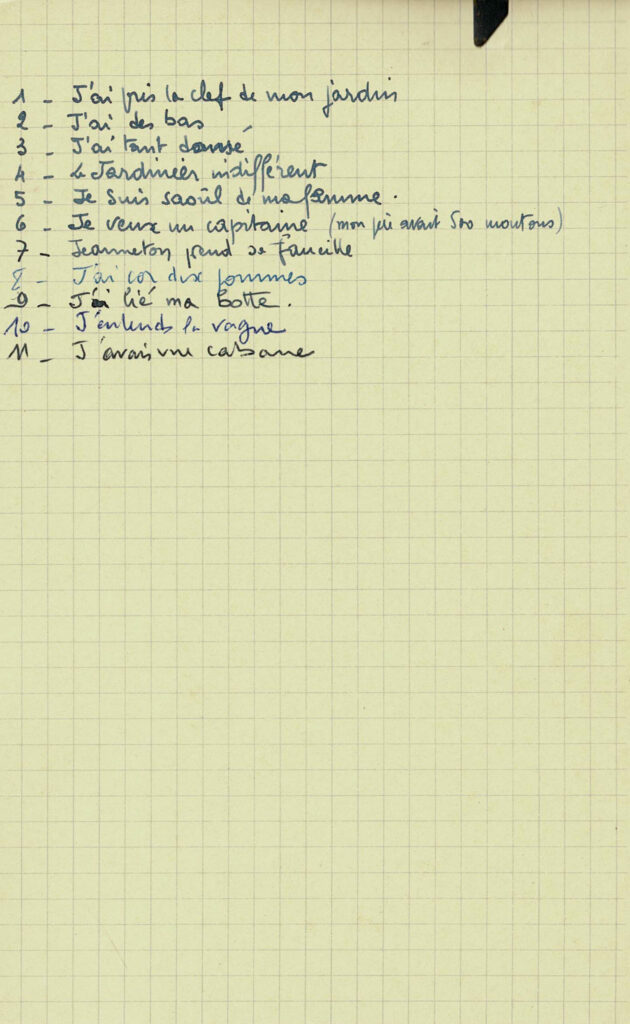 1 - J'ai pris la clef de mon jardin
2 - J'ai des bas
3 - J'ai tant dansé
4 - Le Jardinier indifférent
5 - Je Suis saoûl de ma femme.
6 - Je veux un capitaine (mon père avait 500 moutons)
7 - Jeanneton prend sa faucille
8 - J'ai dix pommes
9 - J'ai lié ma botte.
10 - J'entends la vague
11 - J'avais une cabane